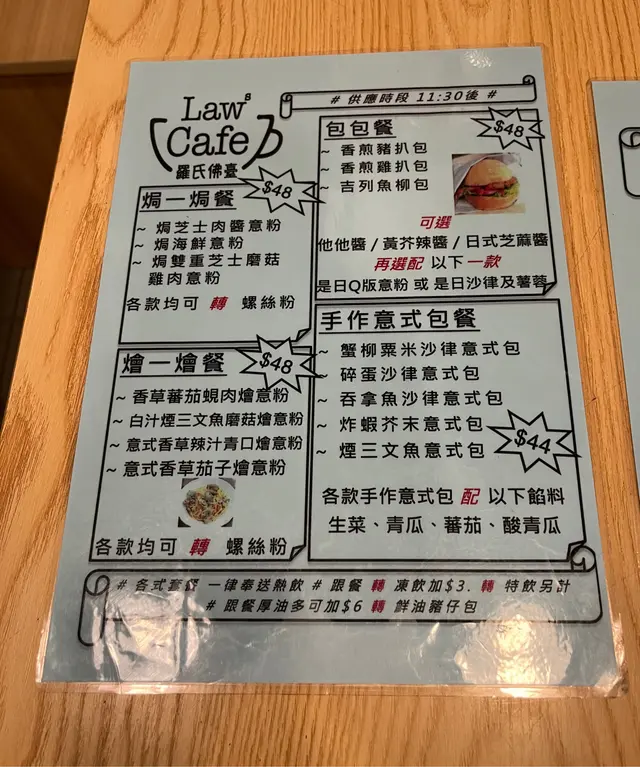 Law's
Cafe
羅氏佛臺
# 供應時段 11:30後 #
焗一焗餐
$48
~ 焗芝士肉醬意粉
~ 焗海鮮意粉
~ 焗雙重芝士磨菇
雞肉意粉
各款均可 轉 螺絲粉
燴一燴餐
$48
~ 香草蕃茄蜆肉燴意粉
~ 白汁煙三文魚磨菇燴意粉
~ 意式香草辣汁青口燴意粉
~ 意式香草茄子燴意粉
各款均可 轉 螺絲粉
包包餐
$48
~ 香煎豬扒包
~ 香煎雞扒包
~ 吉列魚柳包
可選
他他醬 / 黃芥辣醬 / 日式芝麻醬
再選配 以下一款
是日Q版意粉 或 是日沙律及薯蓉
手作意式包餐
~ 蟹柳粟米沙律意式包
~ 碎蛋沙律意式包
~ 吞拿魚沙律意式包
~ 炸蝦芥末意式包
~ 煙三文魚意式包
$44
各款手作意式包 配 以下餡料
生菜、青瓜、蕃茄、酸青瓜
# 各式套餐 一律奉送熱飲 # 跟餐 轉 凍飲加$3. 轉 特飲另計
# 跟餐厚油多可加$6 轉 鮮油豬仔包